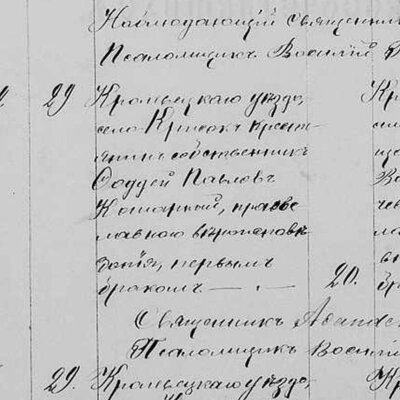 Наблюдающій Священник
Псаломщикъ Василій
29 Кролевецкаго уѣзда,
села Крисокъ крест-
янинъ собственникъ
Фаддей Павловъ
Кошарный, право-
славнаго вѣроисповѣ-
данія, первымъ
бракомъ — 20.
Священникъ Афанас
Псаломщикъ Василій
29. Кролевецкаго уѣзда,